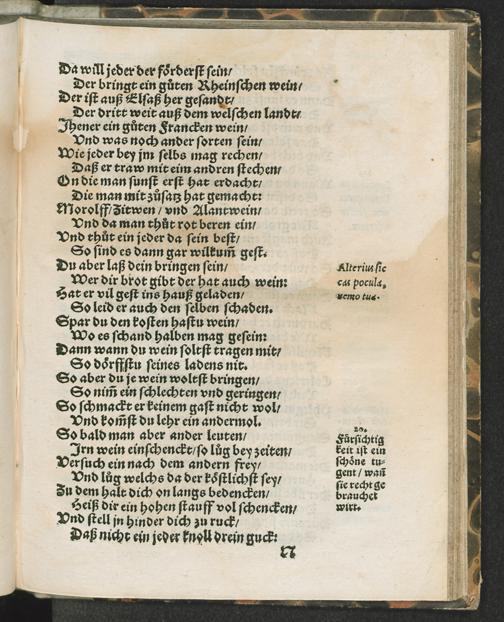 Da will jeder der förderst sein/
Der bringt ein gůten Rheinschen wein/
Der ist auß Elsaß her gesandt/
Der dritt weit auß dem welschen landt/
Jhener ein gůten Francken wein/
Vnd was noch ander sorten sein/
Wie jeder bey jm selbs mag rechen/
Daß er traw mit eim andren stechen/
On die man sunst erst hat erdacht/
Die man mit zůsatz hat gemacht:
Morolff/Zitwen/ vnd Alantwein/
Vnd da man thůt rot beren ein/
Vnd thůt ein jeder da sein best/
So sind es dann gar wilkum̄ gest.
Du aber laß dein bringen sein/
Wer dir brot gibt der hat auch wein:
Hat er vil gest ins hauß geladen/
So leid er auch den selben schaden.
Spar du den kosten hastu wein/
Wo es schand halben mag gesein:
Dann wann du wein soltst tragen mit/
So dörffstu seines ladens nit.
So aber du je wein woltst bringen/
So nim̄ ein schlechten vnd geringen/
So schmackt er keinem gast nicht wol/
Vnd kom̄st du lehr ein andermol.
So bald man aber ander leuten/
Jrn wein einschenckt/so lůg bey zeiten/
Versuch ein nach dem andern frey/
Vnd lůg welchs da der köstlichst sey/
Zu dem halt dich on langs bedencken/
Heiß dir ein hohen stauff vol schencken/
Vnd stell jn hinder dich zu ruck/
Daß nicht ein jeder knoll drein guck:
N
Alterius sic
cas pocula,
nemo tua.
20.
Fürsichtig
keit ist ein
schöne tu-
gent/ wañ
sie recht ge
brauchet
wirt.